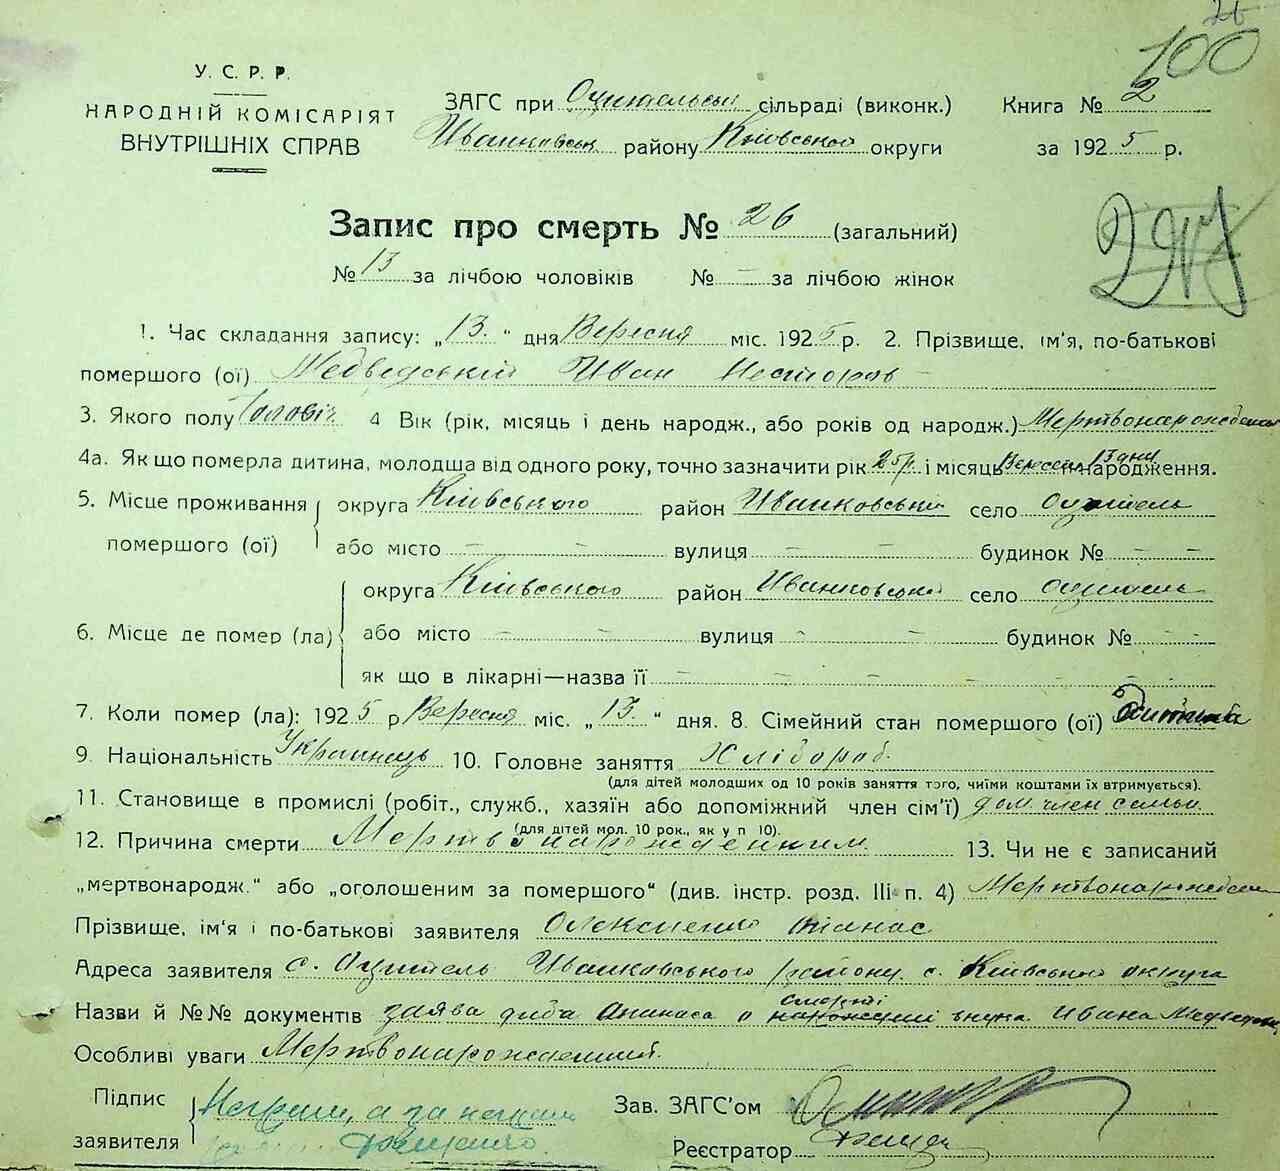 26
100
У. С. Р. Р.
НАРОДНІЙ КОМІСАРІЯТ
ВНУТРІШНІХ СПРАВ
ЗАГС при Оцительській сільраді (виконк.)
Иванковськ району Київської округи
Книга № 2
за 1925 р.
Запис про смерть № 26 (загальний)
№ 13 за лічбою чоловіків № – за лічбою жінок
1. Час складання запису: „13." дня Вересня міс. 1925 р. 2. Прізвище, ім'я, по-батькові
помершого (ої) Медведський Иван Несторов
3. Якого полу Чоловіч. 4 Вік (рік, місяць і день народж., або років од народж.)
4а. Як що померла дитина, молодша від одного року, точно зазначити рік 25 р. і місяць Вересень 13 дня народження.
5. Місце проживання помершого (ої) округа Київського район Иванковський село Оцитель
або місто – – вулиця – – будинок № – –
6. Місце де помер (ла) округа Київського район Иванковський село Оцитель
або місто – – вулиця – – будинок № – –
як що в лікарні—назва її – – – – – – – –
7. Коли помер (ла): 1925 р Вересня міс. „13." дня. 8. Сімейний стан помершого (ої) Дитина
9. Національність Українець 10. Головне заняття Хлібороб.
(для дітей молодших од 10 років заняття того, чиїми коштами їх втримується).
11. Становище в промислі (робіт., служб., хазяїн або допоміжний член сім'ї) дом. член семьи
(для дітей мол. 10 рок., як у п 10).
12. Причина смерти Мертвонарожденним 13. Чи не є записаний
„мертвонародж." або „оголошеним за помершого" (див. інстр. розд. III п. 4)
Прізвище, ім'я і по-батькові заявителя
Адреса заявителя с. Оцитель Иванковського району Київської округа
Назви й №№ документів заява діда Опанаса о смерті внука Ивана
Особливі уваги Мертвонарожденний.
Підпис заявителя Неграм., а за неграм.
Зав. ЗАГС'ом
Реєстратор